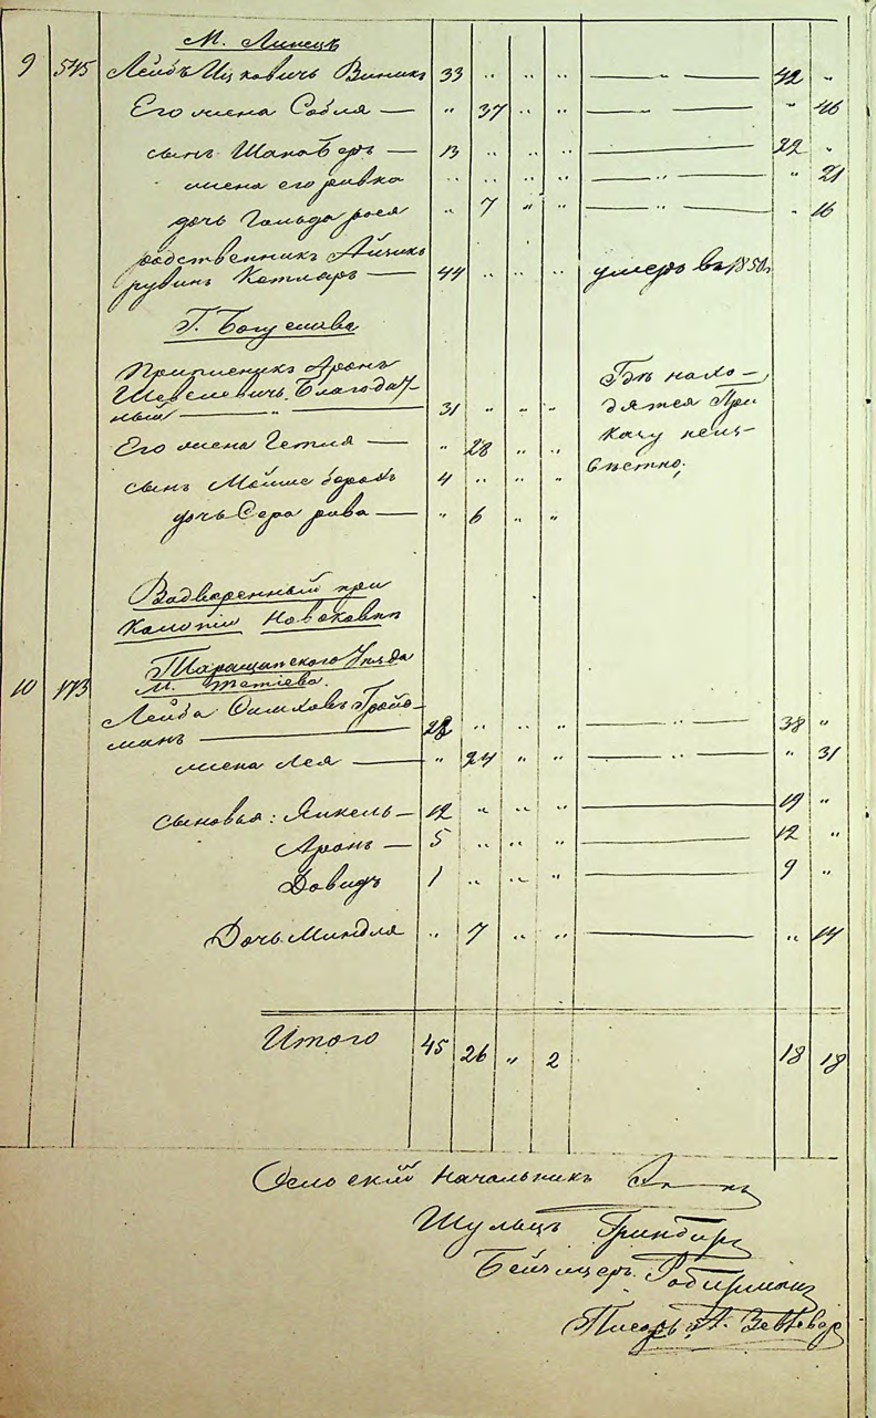 М. Липецъ
9 545 Лейбъ Ицковичъ Виникъ 33 " " " — " — 42 "
Его жена Собля — " 37 " " — " — " 46
сынъ Шаковеръ — 13 " " " — 22 "
жена его ривка " " " " — " — " 21
дочь Гольда рося " 7 " " — " — " 16
родственникъ Айзикъ
рувинъ Котляръ — 44 " " " умеръ въ 1850
Г. Богуслава
Приписникъ Аронъ
Шевелевичъ Благодат-
ный — " — 31 " " "
Где нахо-
дятся При
казу неиз-
вестно;
Его жена Гетля — " 28 " "
сынъ Мойше борохъ 4 " " "
дочь Сера рива — " 6 " "
Водворенный при
Колоніи Новоковно
Таращанского Уезда
М. Тетіева.
10 173 Лейба Симховъ Гройс-
манъ — 28 " " " — " — 38 "
жена Лея — " 24 " " — " — " 31
сыновья: Янкель — 12 " " " — 19 "
Аронъ — 5 " " " — 12 "
Довидъ 1 " " " — 9 "
Дочь Миндля " 7 " " — " 14
Итого 45 26 " 2 18 18
Сельскій Начальникъ
Шульцъ
Бейзицеръ
Писарь А.